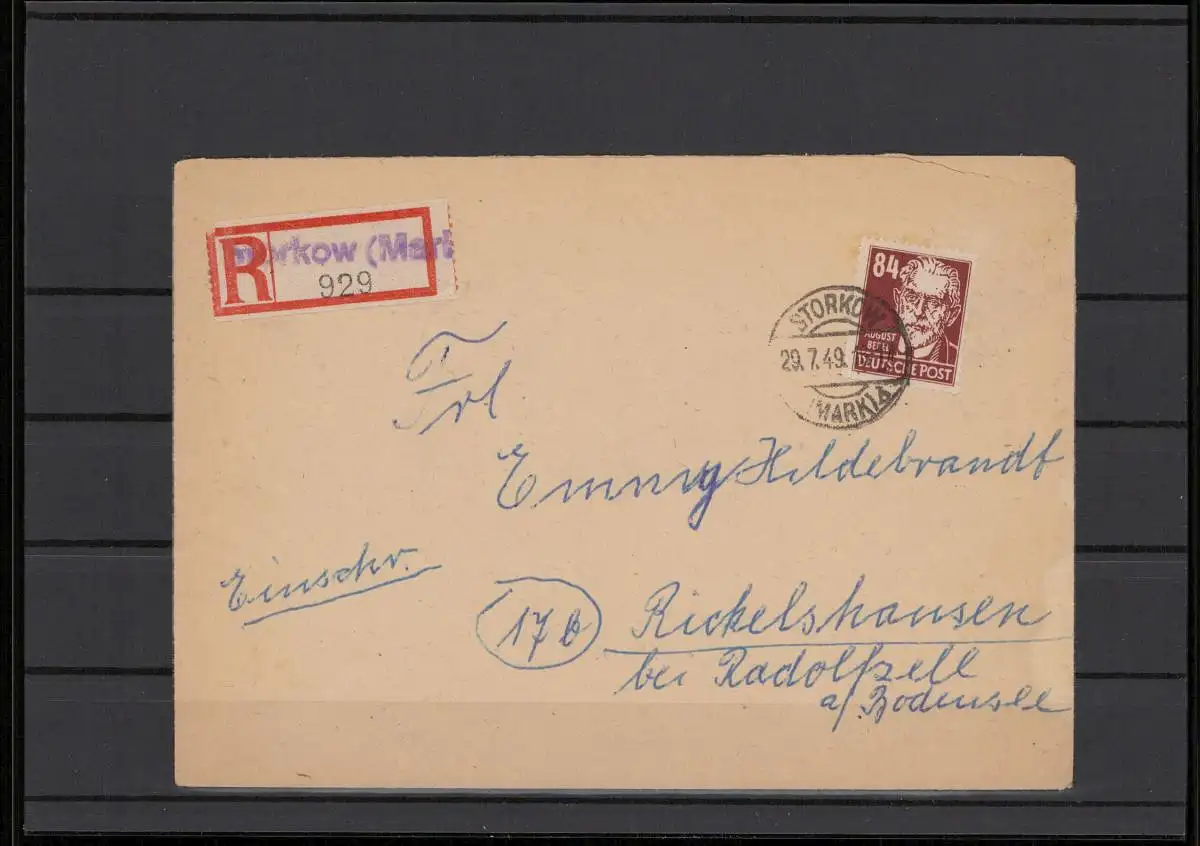 R
Storkow (Mark
929
84
AUGUST
BEBEL
DEUTSCHE POST
STORKOW
29.7.49.
(MARK) b
Frl.
Emmy Hildebrandt
Einschr.
17b
Rickelshausen
bei Radolfzell
a/Bodensee